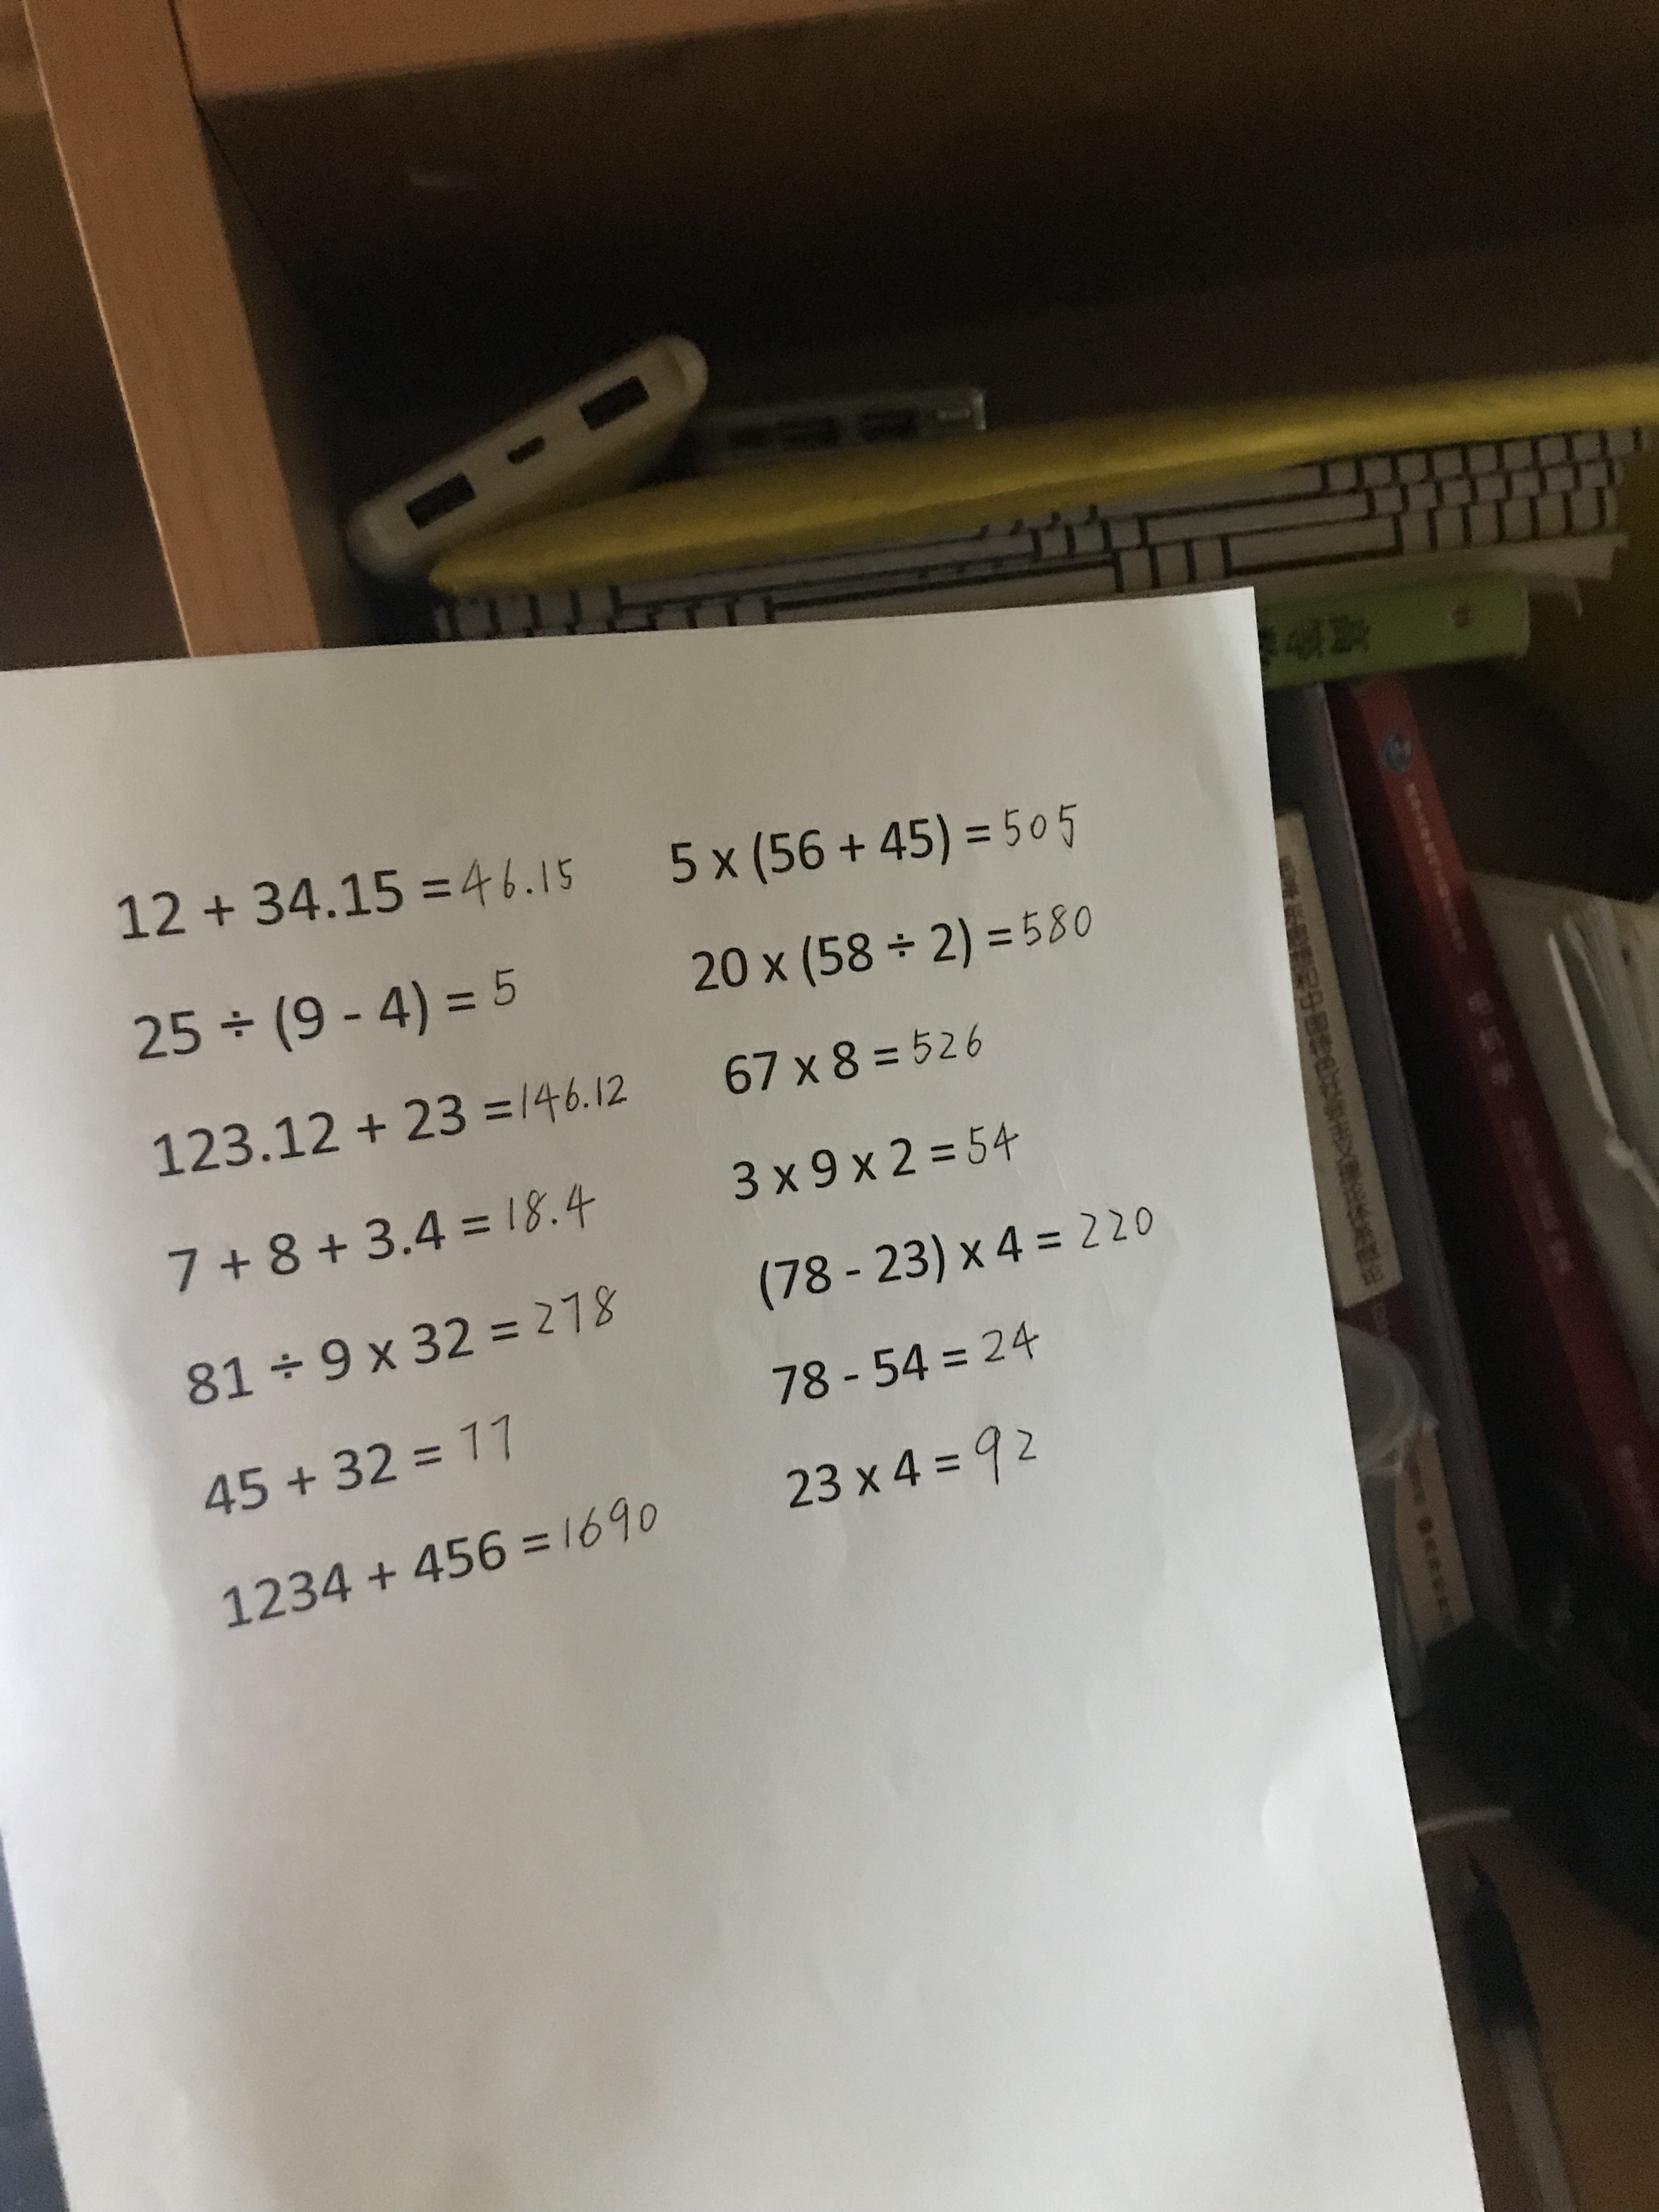 12 + 34.15 = 46.15
25 ÷ (9 - 4) = 5
123.12 + 23 = 146.12
7 + 8 + 3.4 = 18.4
81 ÷ 9 x 32 = 278
45 + 32 = 77
1234 + 456 = 1690
5 x (56 + 45) = 505
20 x (58 ÷ 2) = 580
67 x 8 = 526
3 x 9 x 2 = 54
(78 - 23) x 4 = 220
78 - 54 = 24
23 x 4 = 92